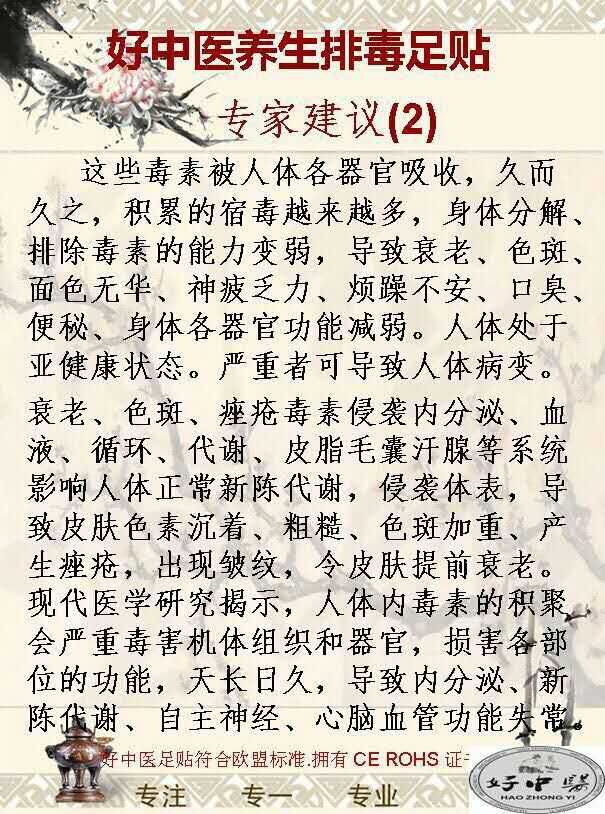 好中医养生排毒足贴
专家建议(2)
这些毒素被人体各器官吸收，久而
久之，积累的宿毒越来越多，身体分解、
排除毒素的能力变弱，导致衰老、色斑、
面色无华、神疲乏力、烦躁不安、口臭、
便秘、身体各器官功能减弱。人体处于
亚健康状态。严重者可导致人体病变。
衰老、色斑、痤疮毒素侵袭内分泌、血
液、循环、代谢、皮脂毛囊汗腺等系统
影响人体正常新陈代谢，侵袭体表，导
致皮肤色素沉着、粗糙、色斑加重、产
生痤疮，出现皱纹，令皮肤提前衰老。
现代医学研究揭示，人体内毒素的积聚
会严重毒害机体组织和器官，损害各部
位的功能，天长日久，导致内分泌、新
陈代谢、自主神经、心脑血管功能失常。
好中医足贴符合欧盟标准.拥有 CE ROHS 证
专注 专一 专业
好中醫
HAO ZHONG YI